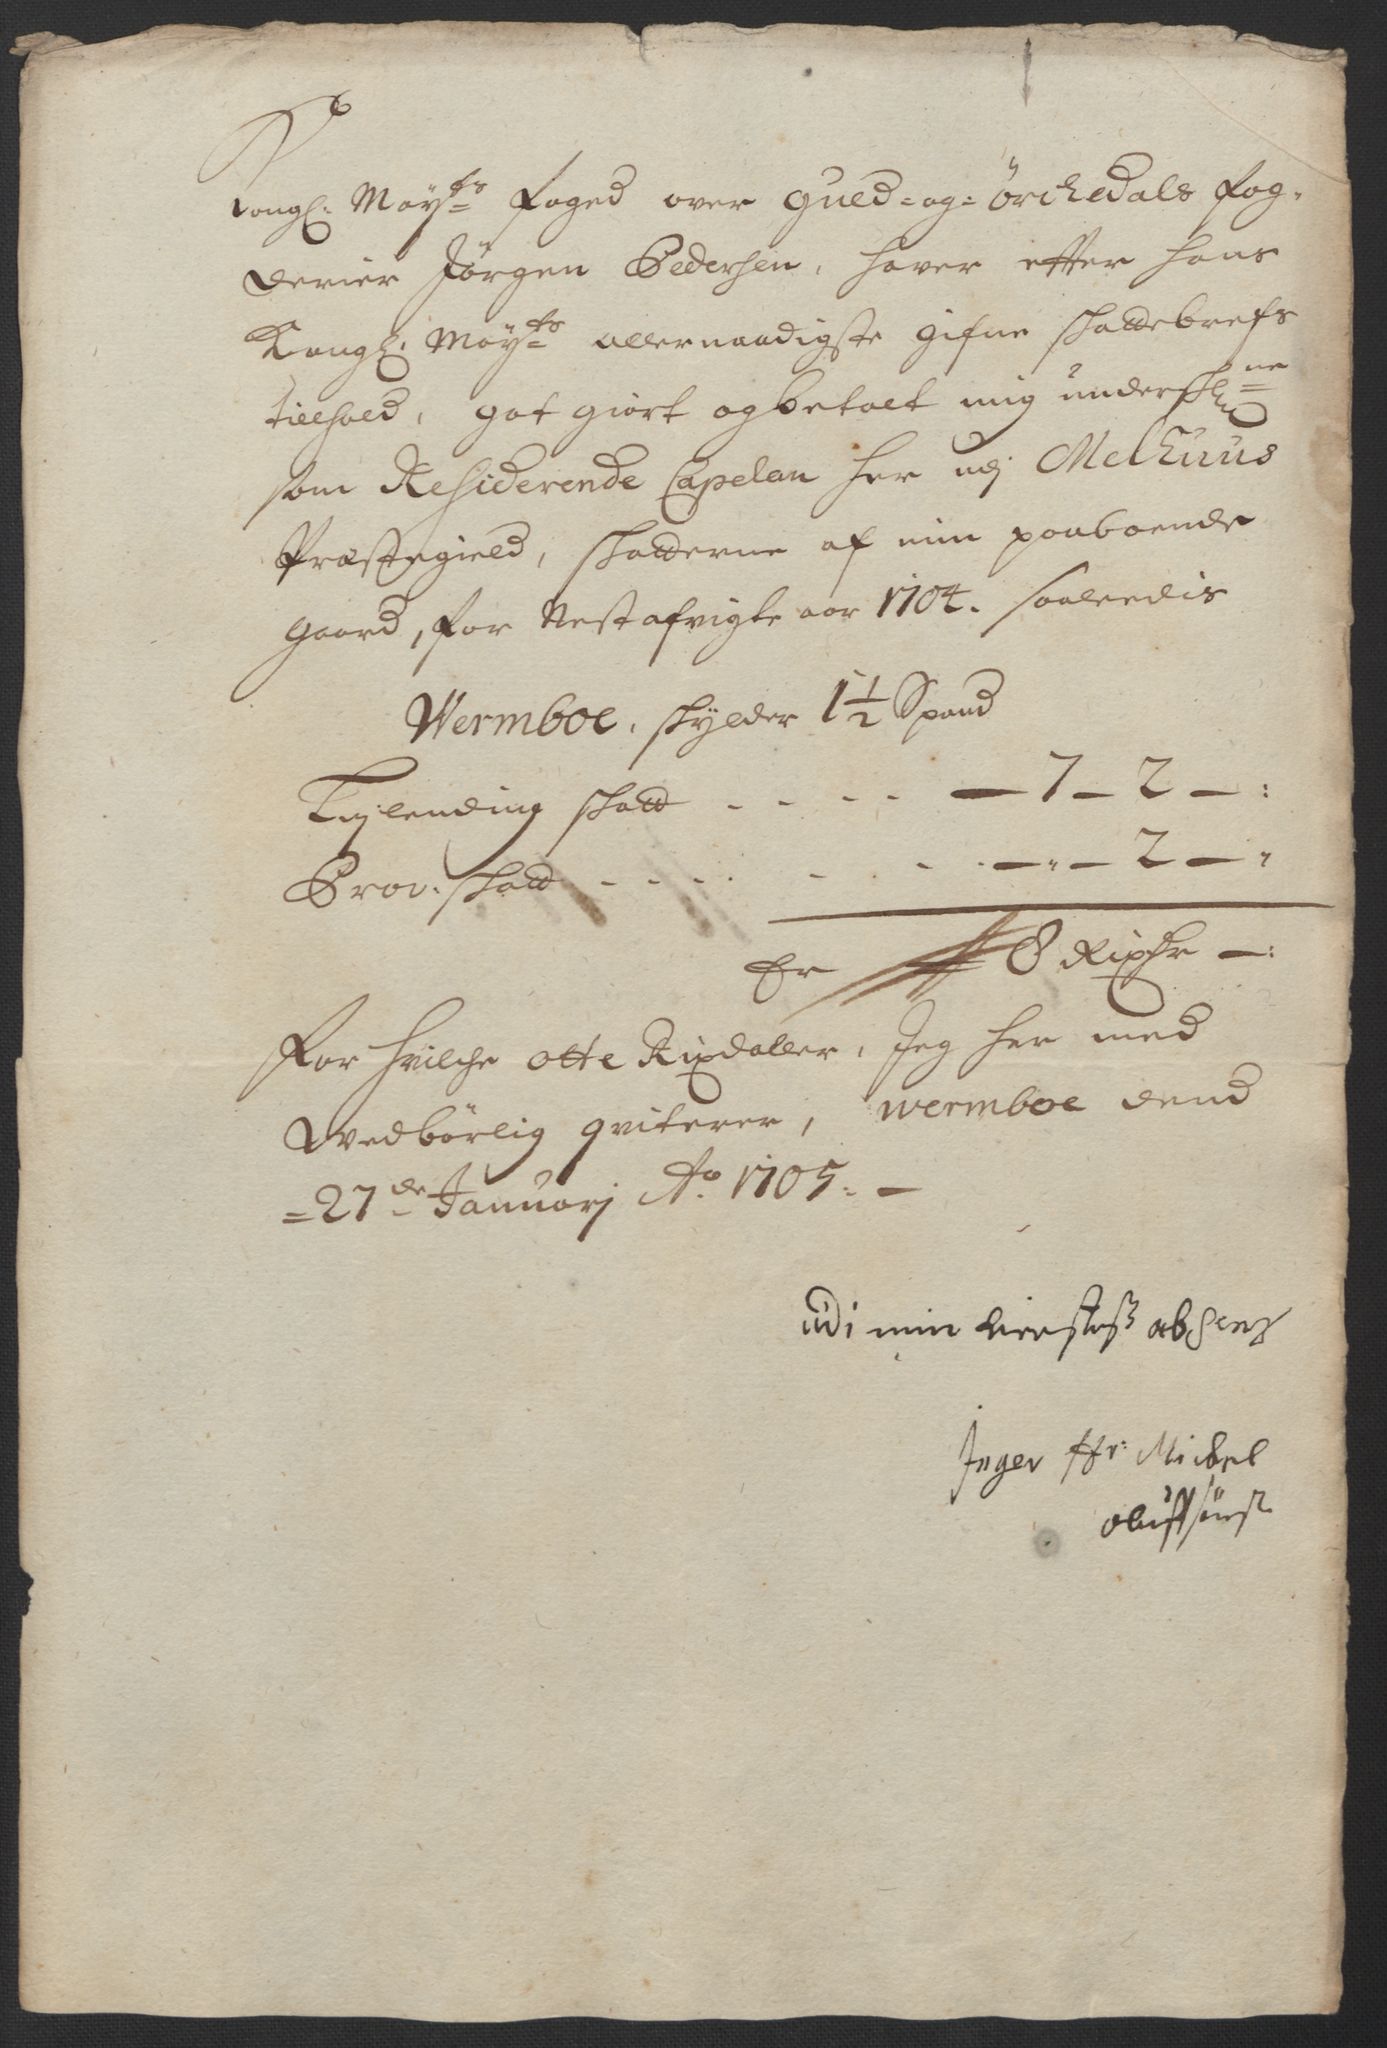 Kongl: May:ts foged over Guld=og=Örchedals fog-
derier Jörgen Pedersen, hafver efter hans
Kongl: May:ts allernaadigste gifne skattebrefs
tilhold, got giort og betalt mig underskr:ne
som Residerende Capelan her udj Melhuus
Præstegield, skatterne af min paaboende
gaard, for Nest afvigte aar 1704. saaledis
Wermboe, skylder 1 1/2 Spand
Leylending skatt - - - - — 7 — 2 — :
Prov: skatt - - - - - - - — „ — 2 — „
Er 8 Rixdr — :
For hvilche otte Rixdaller, Jeg her med
tilbörlig qviterer, Wermboe dend
=27de Januarj Ao. 1705. —
udi min kierestes absens
Inger Hr: Mickel
olufsöns